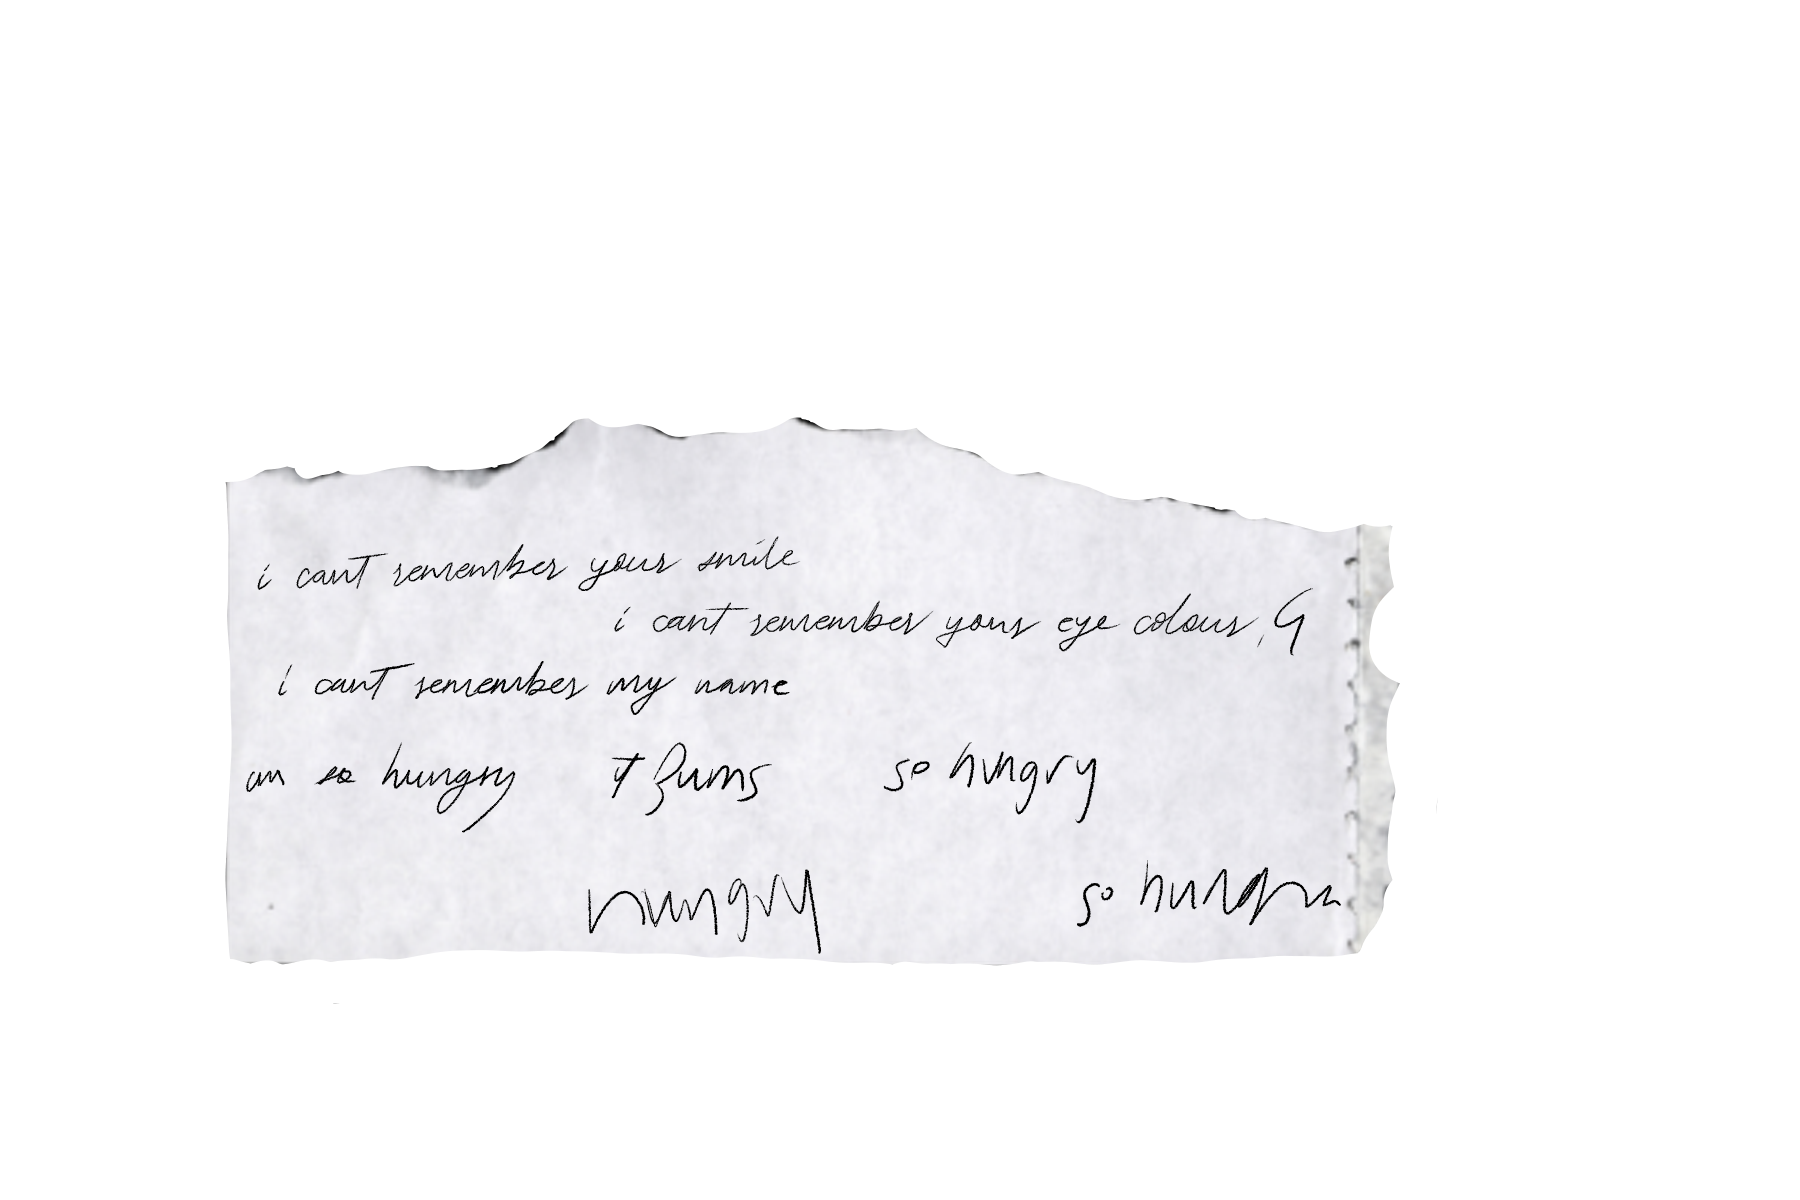 i cant remember your smile
i cant remember your eye colour, G
i cant remember my name
am so hungry it burns so hungry
hungry so hungry